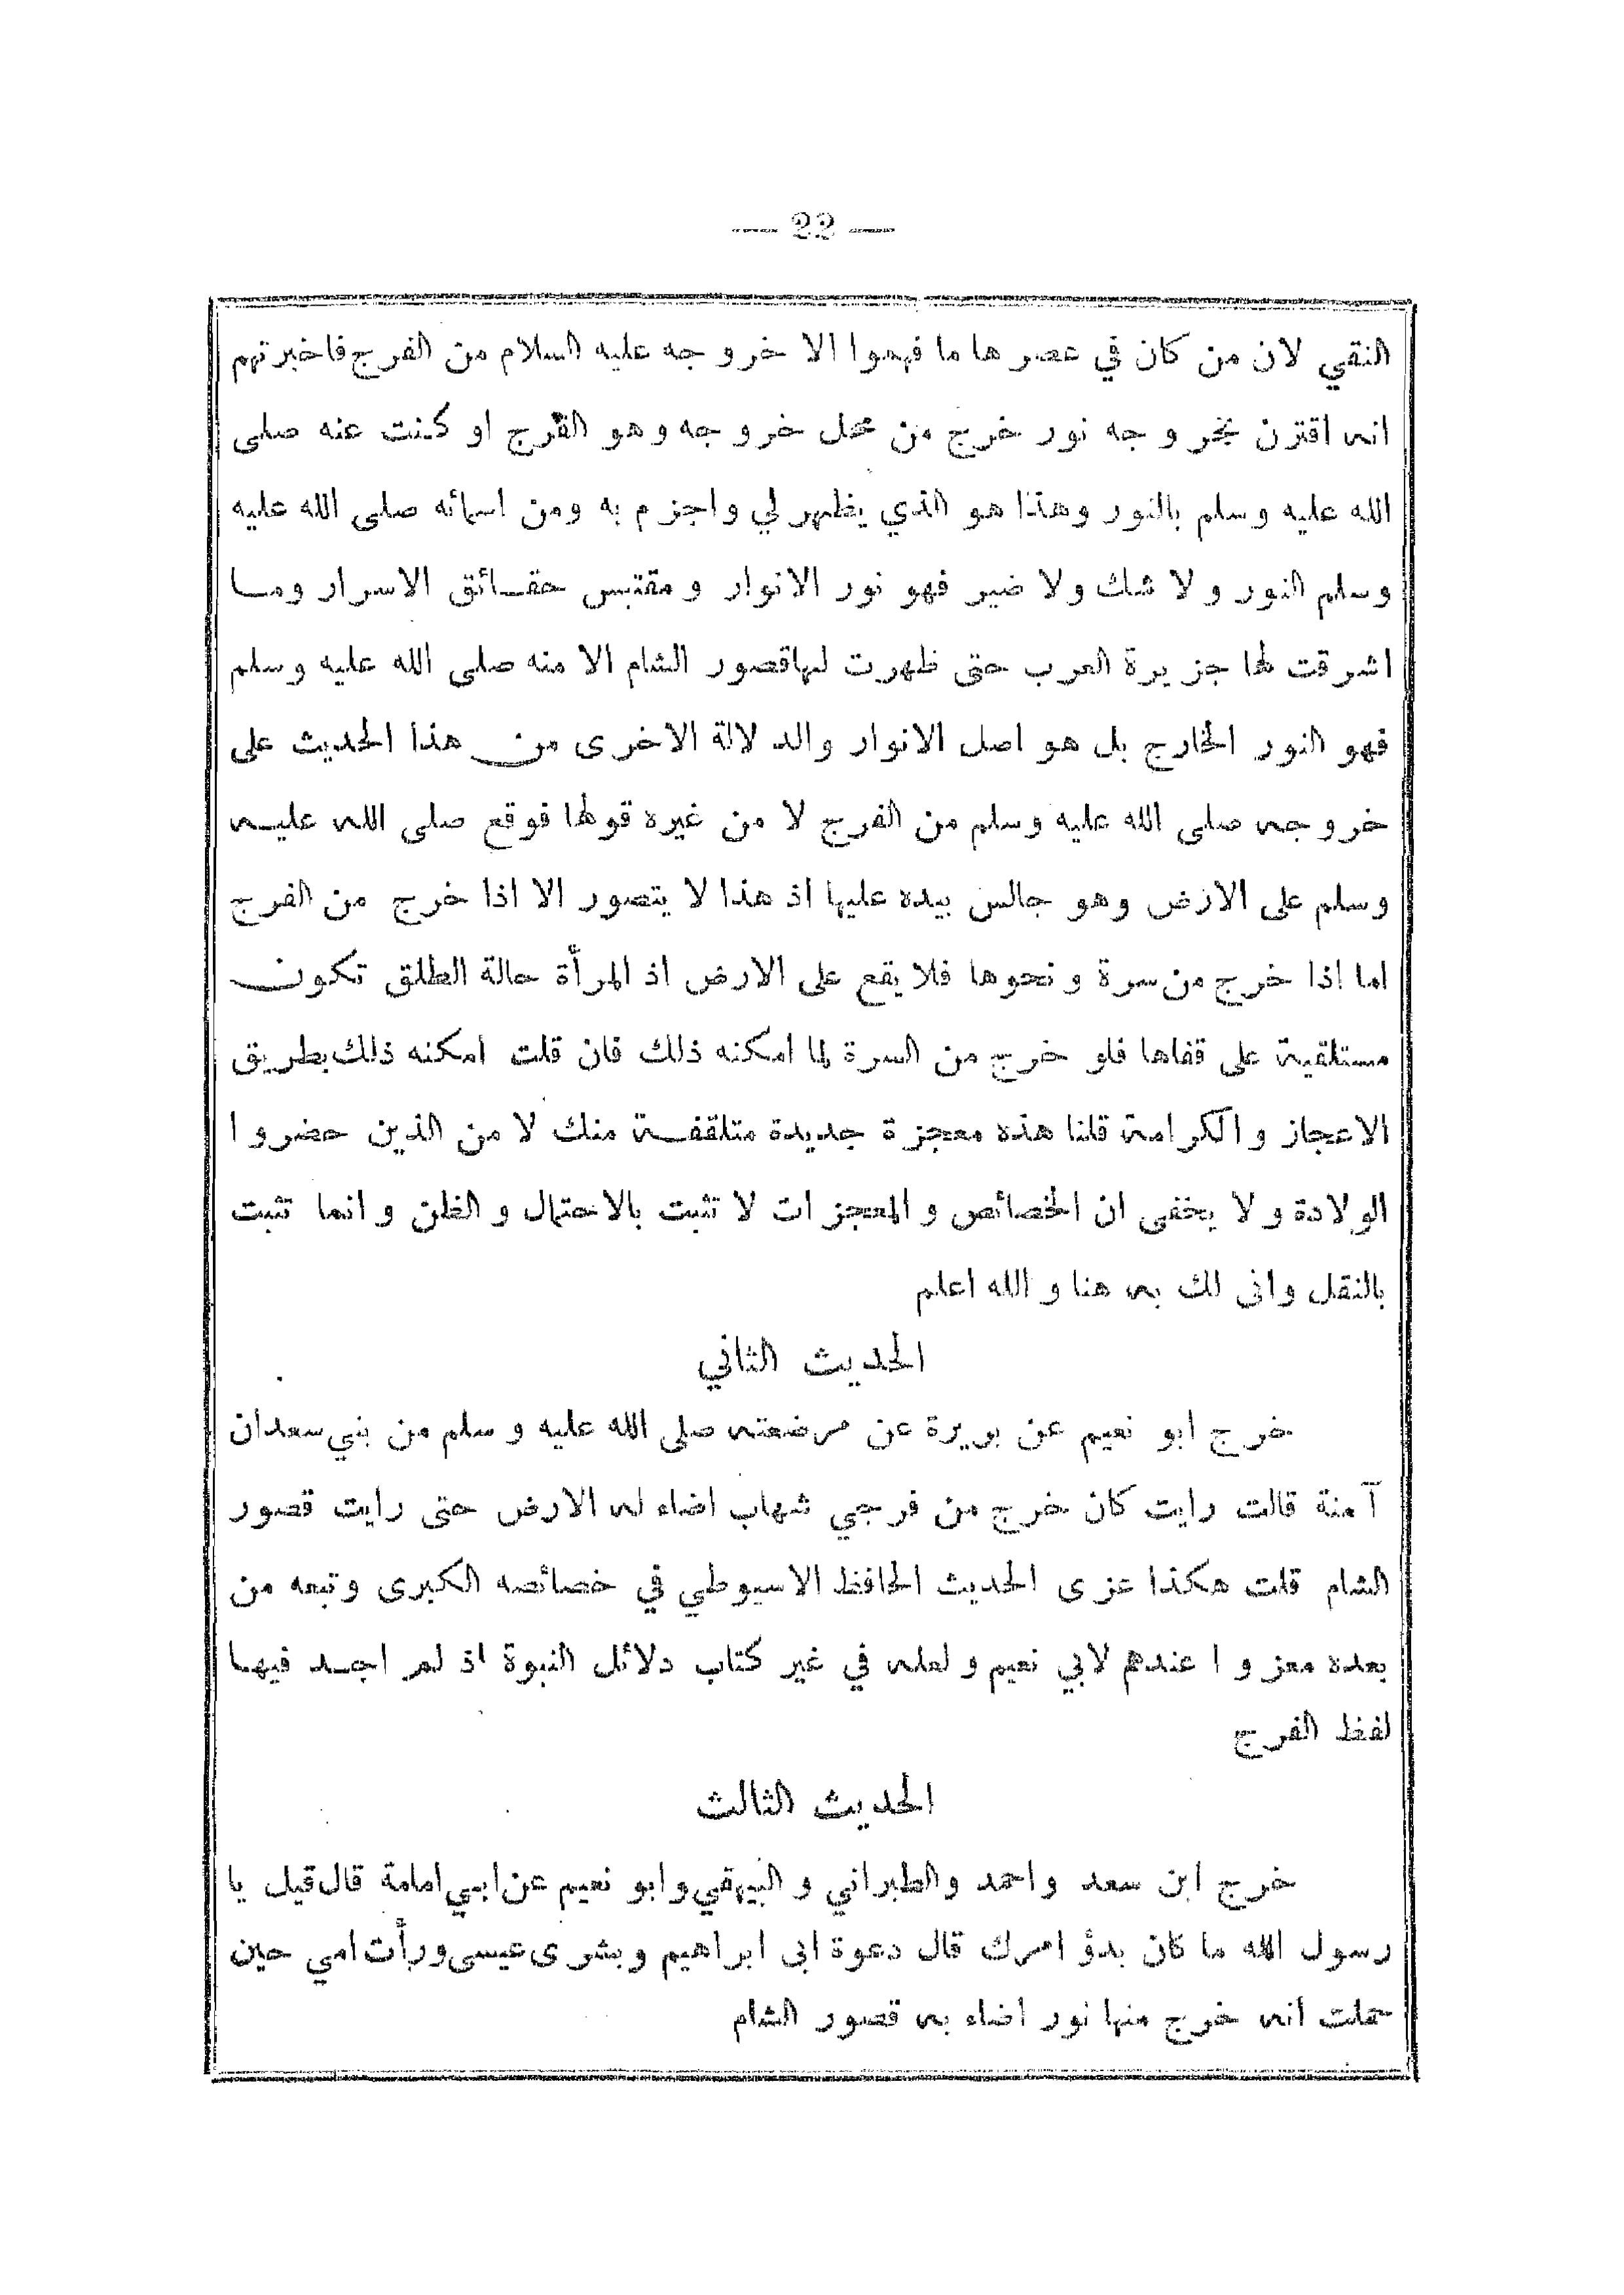 — 22 —
النقي لان من كان في عصرها ما فهموا الا خروجه عليه السلام من الفرج فاخبرتهم
انه اقترن بخروجه نور خرج من محل خروجه وهو الفرج او كنت عنه صلى
الله عليه وسلم بالنور وهذا هو الذي يظهر لي واجزم به ومن اسمائه صلى الله عليه
وسلم النور ولا شك ولا ضير فهو نور الانوار ومقتبس حقائق الاسرار وما
اشرقت لها جزيرة العرب حتى ظهرت لها قصور الشام الا منه صلى الله عليه وسلم
فهو النور الخارج بل هو اصل الانوار والدلالة الاخرى من هذا الحديث على
خروجه صلى الله عليه وسلم من الفرج لا من غيره قولها فوقع صلى الله عليه
وسلم على الارض وهو جالس بيده عليها اذ هذا لا يتصور الا اذا خرج من الفرج
اما اذا خرج من سرة ونحوها فلا يقع على الارض اذ المرأة حالة الطلق تكون
مستلقية على قفاها فلو خرج من السرة لما امكنه ذلك فان قلت امكنه ذلك بطريق
الاعجاز والكرامة قلنا هذه معجزة جديدة متلقفة منك لا من الذين حضروا
الولادة ولا يخفى ان الخصائص والمعجزات لا تثبت بالاحتمال والظن وانما تثبت
بالنقل وانى لك به هنا والله اعلم
الحديث الثاني
خرج ابو نعيم عن بريرة عن مرضعته صلى الله عليه وسلم من بني سعد ان
آمنة قالت رايت كان خرج من فرجي شهاب اضاء له الارض حتى رايت قصور
الشام قلت هكذا عزى الحديث الحافظ الاسيوطي في خصائصه الكبرى وتبعه من
بعده معزوا عندهم لابي نعيم ولعله في غير كتاب دلائل النبوة اذ لم اجد فيها
لفظ الفرج
الحديث الثالث
خرج ابن سعد واحمد والطبراني والبيهقي وابو نعيم عن ابي امامة قال قيل يا
رسول الله ما كان بدؤ امرك قال دعوة ابى ابراهيم وبشرى عيسى ورأت امي حين
حملت انه خرج منها نور اضاء به قصور الشام